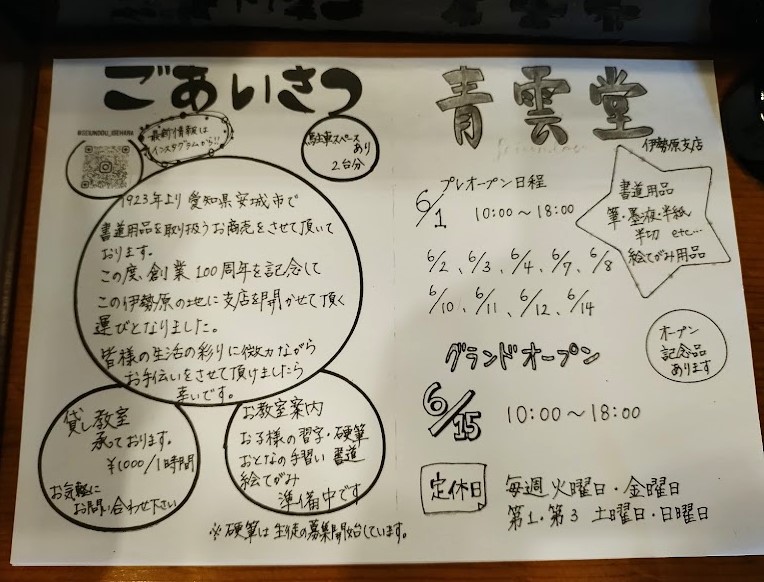 ごあいさつ
@SEIUNDOU_ISEHARA
最新情報は
インスタグラムから!!
駐車スペース
あり
2台分
1923年より愛知県安城市で
書道用品を取り扱うお商売をさせて頂いて
おります。
この度、創業100周年を記念して
この伊勢原の地に支店を開かせて頂く
運びとなりました。
皆様の生活の彩りに微力ながら
お手伝いをさせて頂けましたら
幸いです。
貸し教室
承っております。
¥1000/1時間
お気軽に
お問い合わせ下さい
お教室案内
お子様の習字・硬筆
おとなの手習い 書道
絵てがみ
準備中です
※硬筆は生徒の募集開始しています。
青雲堂
伊勢原支店
プレオープン日程
6/1 10:00~18:00
6/2、6/3、6/4、6/7、6/8
6/10、6/11、6/12、6/14
書道用品
筆・墨液・半紙
半切 etc…
絵てがみ用品
グランドオープン
6/15 10:00~18:00
オープン
記念品
あります
定休日
毎週火曜日・金曜日
第1・第3 土曜日・日曜日